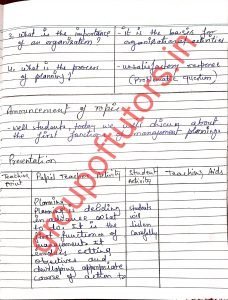 3. what is the importance - it is the basis for
of an organization? organizational activities
4. what is the process - unsatisfactory response
of planning? (Problematic question)
Announcement of topic :-
well students, today we will discuss about
the first function of management planning.
Presentation
Teaching Point Pupil Teacher Activity Student Activity Teaching Aids
Planning:-
Planning is deciding Students
in advance what will
to do. It is the listen
first function of carefully
management. It
involves setting
objectives and
developing appropriate
course of action to
groupoftutors.in